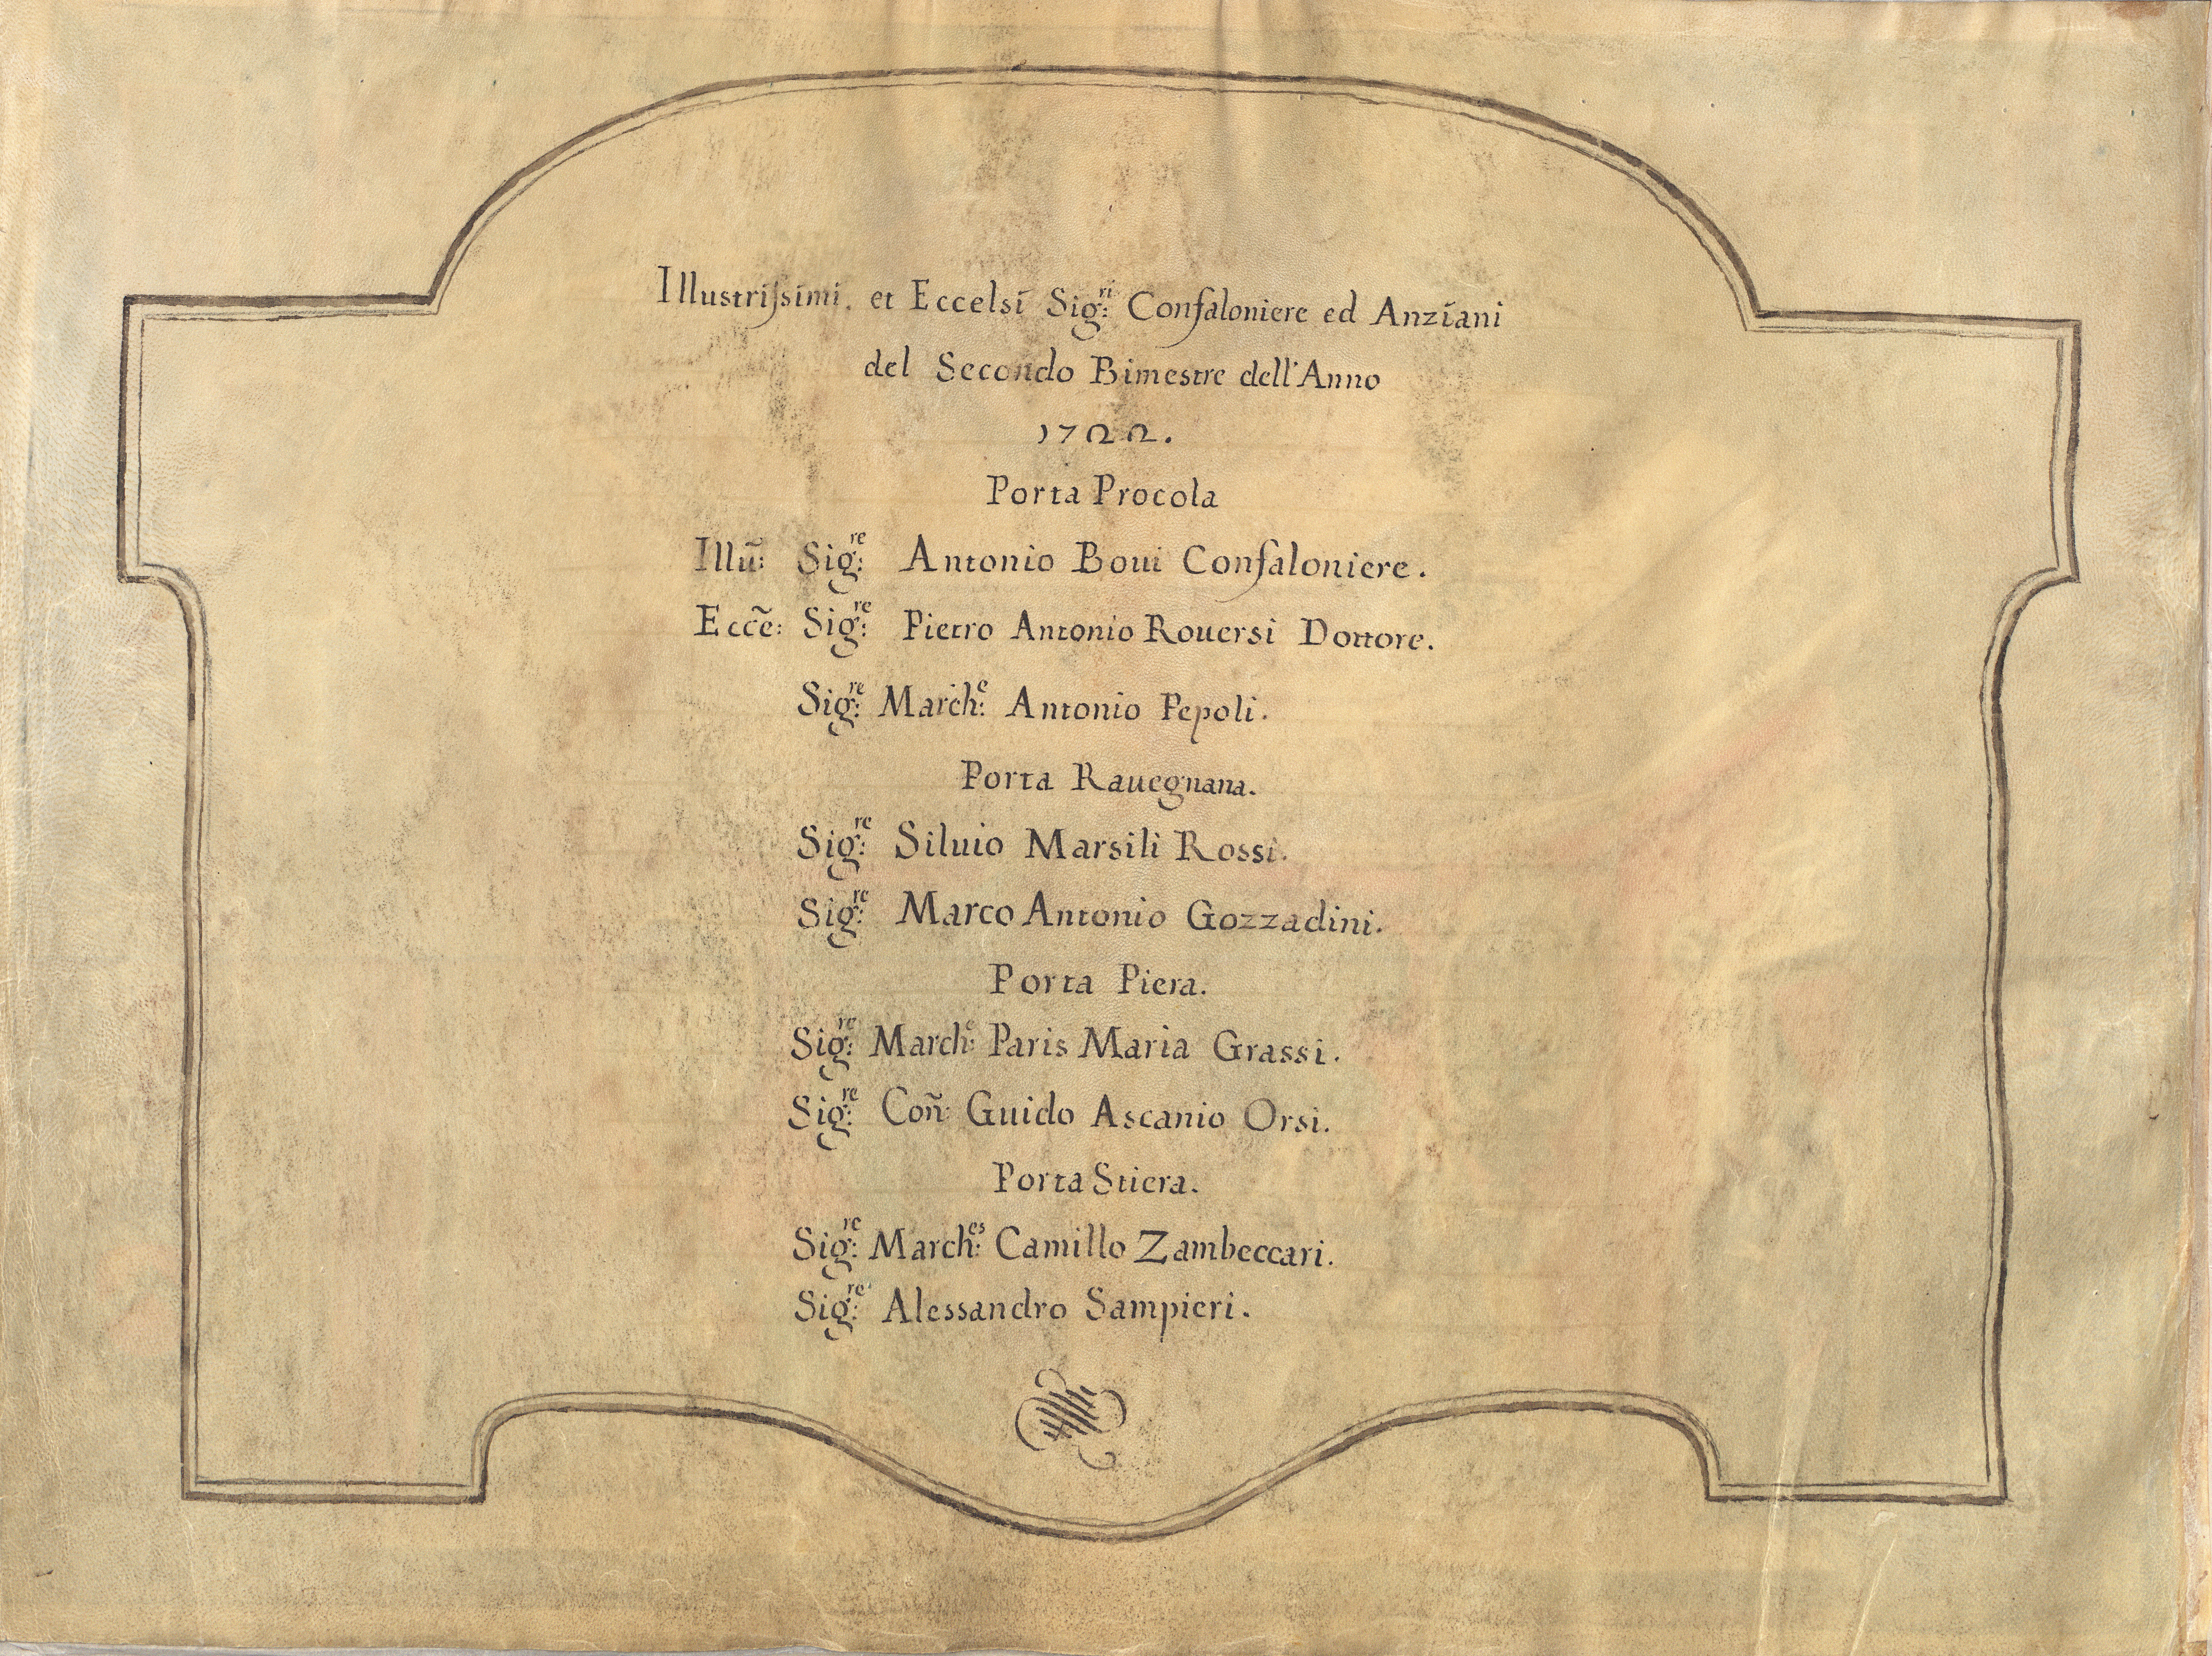 Illustrissimi. et Eccelsi Sig:ri Confaloniere ed Anziani
del Secondo Bimestre dell'Anno
1722.
Porta Procola
Illũ: Sig:re Antonio Boui Confaloniere.
Ecc̃e: Sig:re Pietro Antonio Rouersi Dottore.
Sig:re March:e Antonio Pepoli.
Porta Rauegnana.
Sig:re Siluio Marsili Rossi.
Sig:re Marco Antonio Gozzadini.
Porta Piera.
Sig:re March:e Paris Maria Grassi.
Sig:re Coñ: Guido Ascanio Orsi.
Porta Stiera.
Sig:re March:es Camillo Zambeccari.
Sig:re Alessandro Sampieri.